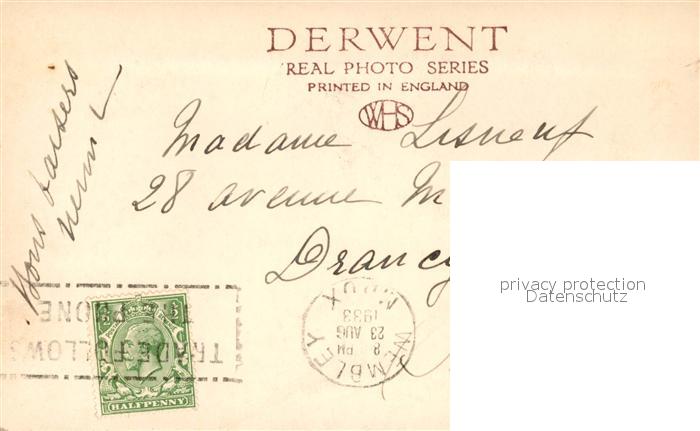 DERWENT
REAL PHOTO SERIES
PRINTED IN ENGLAND
WHS
Madame
28 avenue M
Drancy
Bons baisers
privacy protection
Datenschutz
WEMBLEY
8 PM
23 AUG
1933
MDDX
TRADE FOLLOWS
PHONE
HALFPENNY